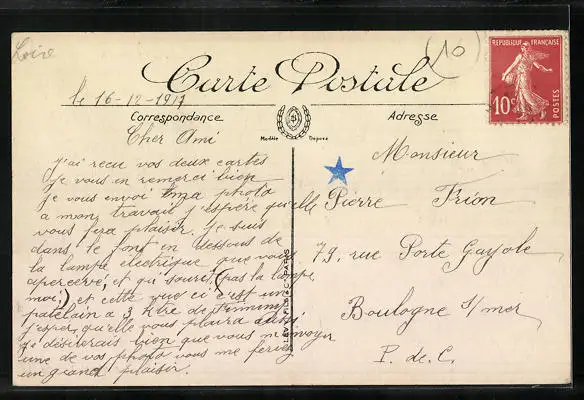 Loire
(10)
Carte Postale
REPUBLIQUE FRANÇAISE
10c
POSTES
le 16-12-1917
Correspondance
Modèle Déposé
Adresse
Cher Ami
J'ai recu vos deux cartes
Je vous en remerci bien
Je vous envoi ma photo
a mon travail j'espère qu'elle
vous fera plaisir. Je suis
dans le font en dessous de
la lampe électrique que vous
apercevé, et qui sourit (pas la lampe
moi,) et cette vue ci c'est un
patelain a 3 Ktre de
j'espère qu'elle vous plaira aussi
je désirerais bien que vous m'envoyer
une de vos photo vous me feriez
un grand plaisir.
LEVY FILS & Cie PARIS
Monsieur
Pierre Frion
79, rue Porte Gayole
Boulogne s/mer
P. de C.